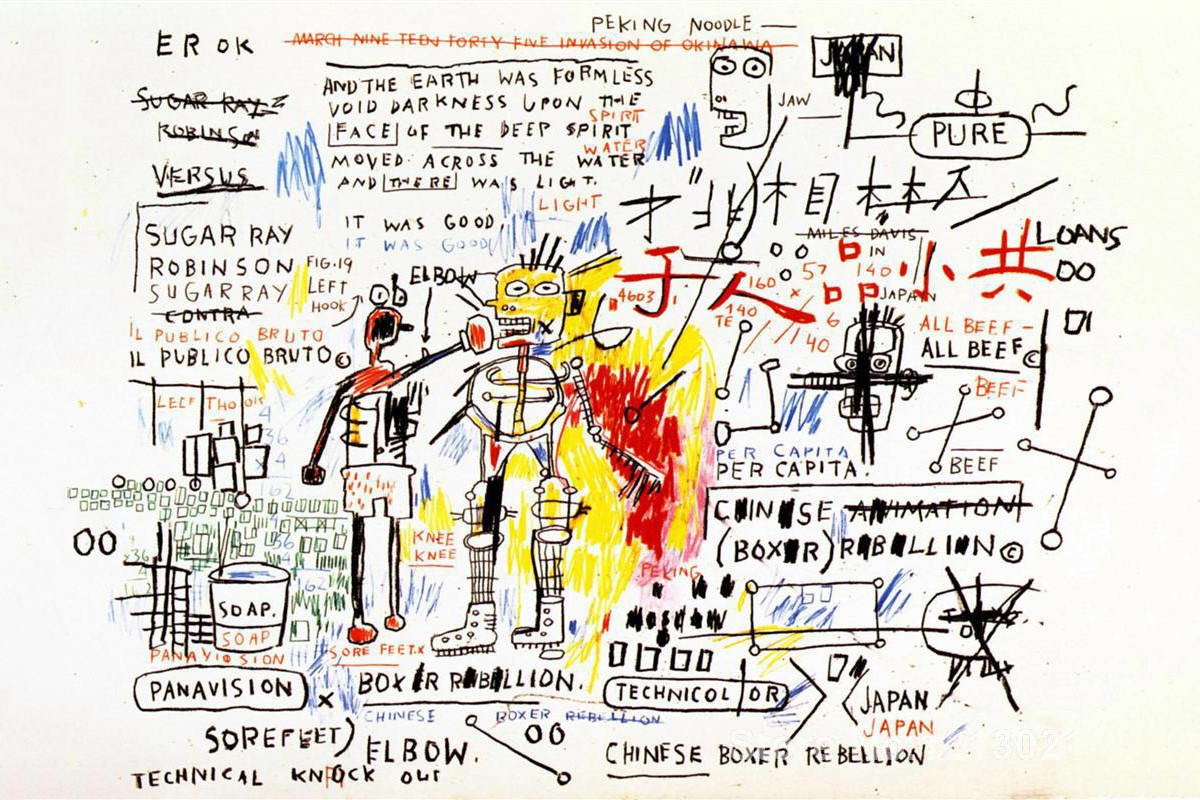 PEKING NOODLE
EROK
MARCH NINE TEEN FORTY FIVE INVASION OF OKINAWA
JAPAN
AND THE EARTH WAS FORMLESS
SUGAR RAY
VOID DARKNESS UPON THE
JAW
SPIRIT
ROBINSON
FACE OF THE DEEP SPIRIT
PURE
WATER
MOVED ACROSS THE WATER
VERSUS
AND THERE WAS LIGHT.
LIGHT
IT WAS GOOD
IT WAS GOOD
MILES DAVIS
LOANS
SUGAR RAY
IN
ROBINSON
FIG.19
LEFT
HOOK
ELBOW
子人品小共
57
140
160
x
4603
JAPAN
SUGAR RAY
CONTRA
140
TE
6
40
ALL BEEF-
ALL BEEF©
IL PUBLICO BRUTO
IL PUBLICO BRUTO©
BEEF
4
36
x4
PER CAPITA
PER CAPITA.
BEEF
162
CHINESE ANIMATION
(BOXER) REBELLION©
KNEE
KNEE
36
x36
162
PEKING
MOSCOW
SOAP.
SOAP
SORE FEET.X
PANAVISION
PANAVISION X BOXER REBELLION.
TECHNICOLOR
JAPAN
JAPAN
CHINESE BOXER REBELLION
SOREFEET) ELBOW.
CHINESE BOXER REBELLION
TECHNICAL KNOCK OUT